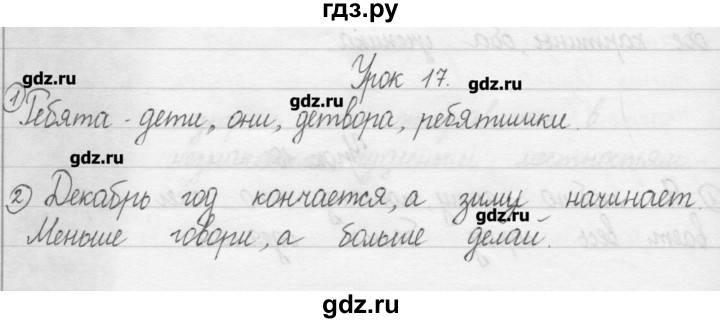 гдз.ру
все картины, оба ученика
Урок 17.
gdz.ru
gdz.ru
gdz.ru
1) Ребята - дети, они, детвора, ребятишки.
gdz.ru
2) Декабрь год кончается, а зиму начинает.
gdz.ru
Меньше говори, а больше делай.
gdz.ru